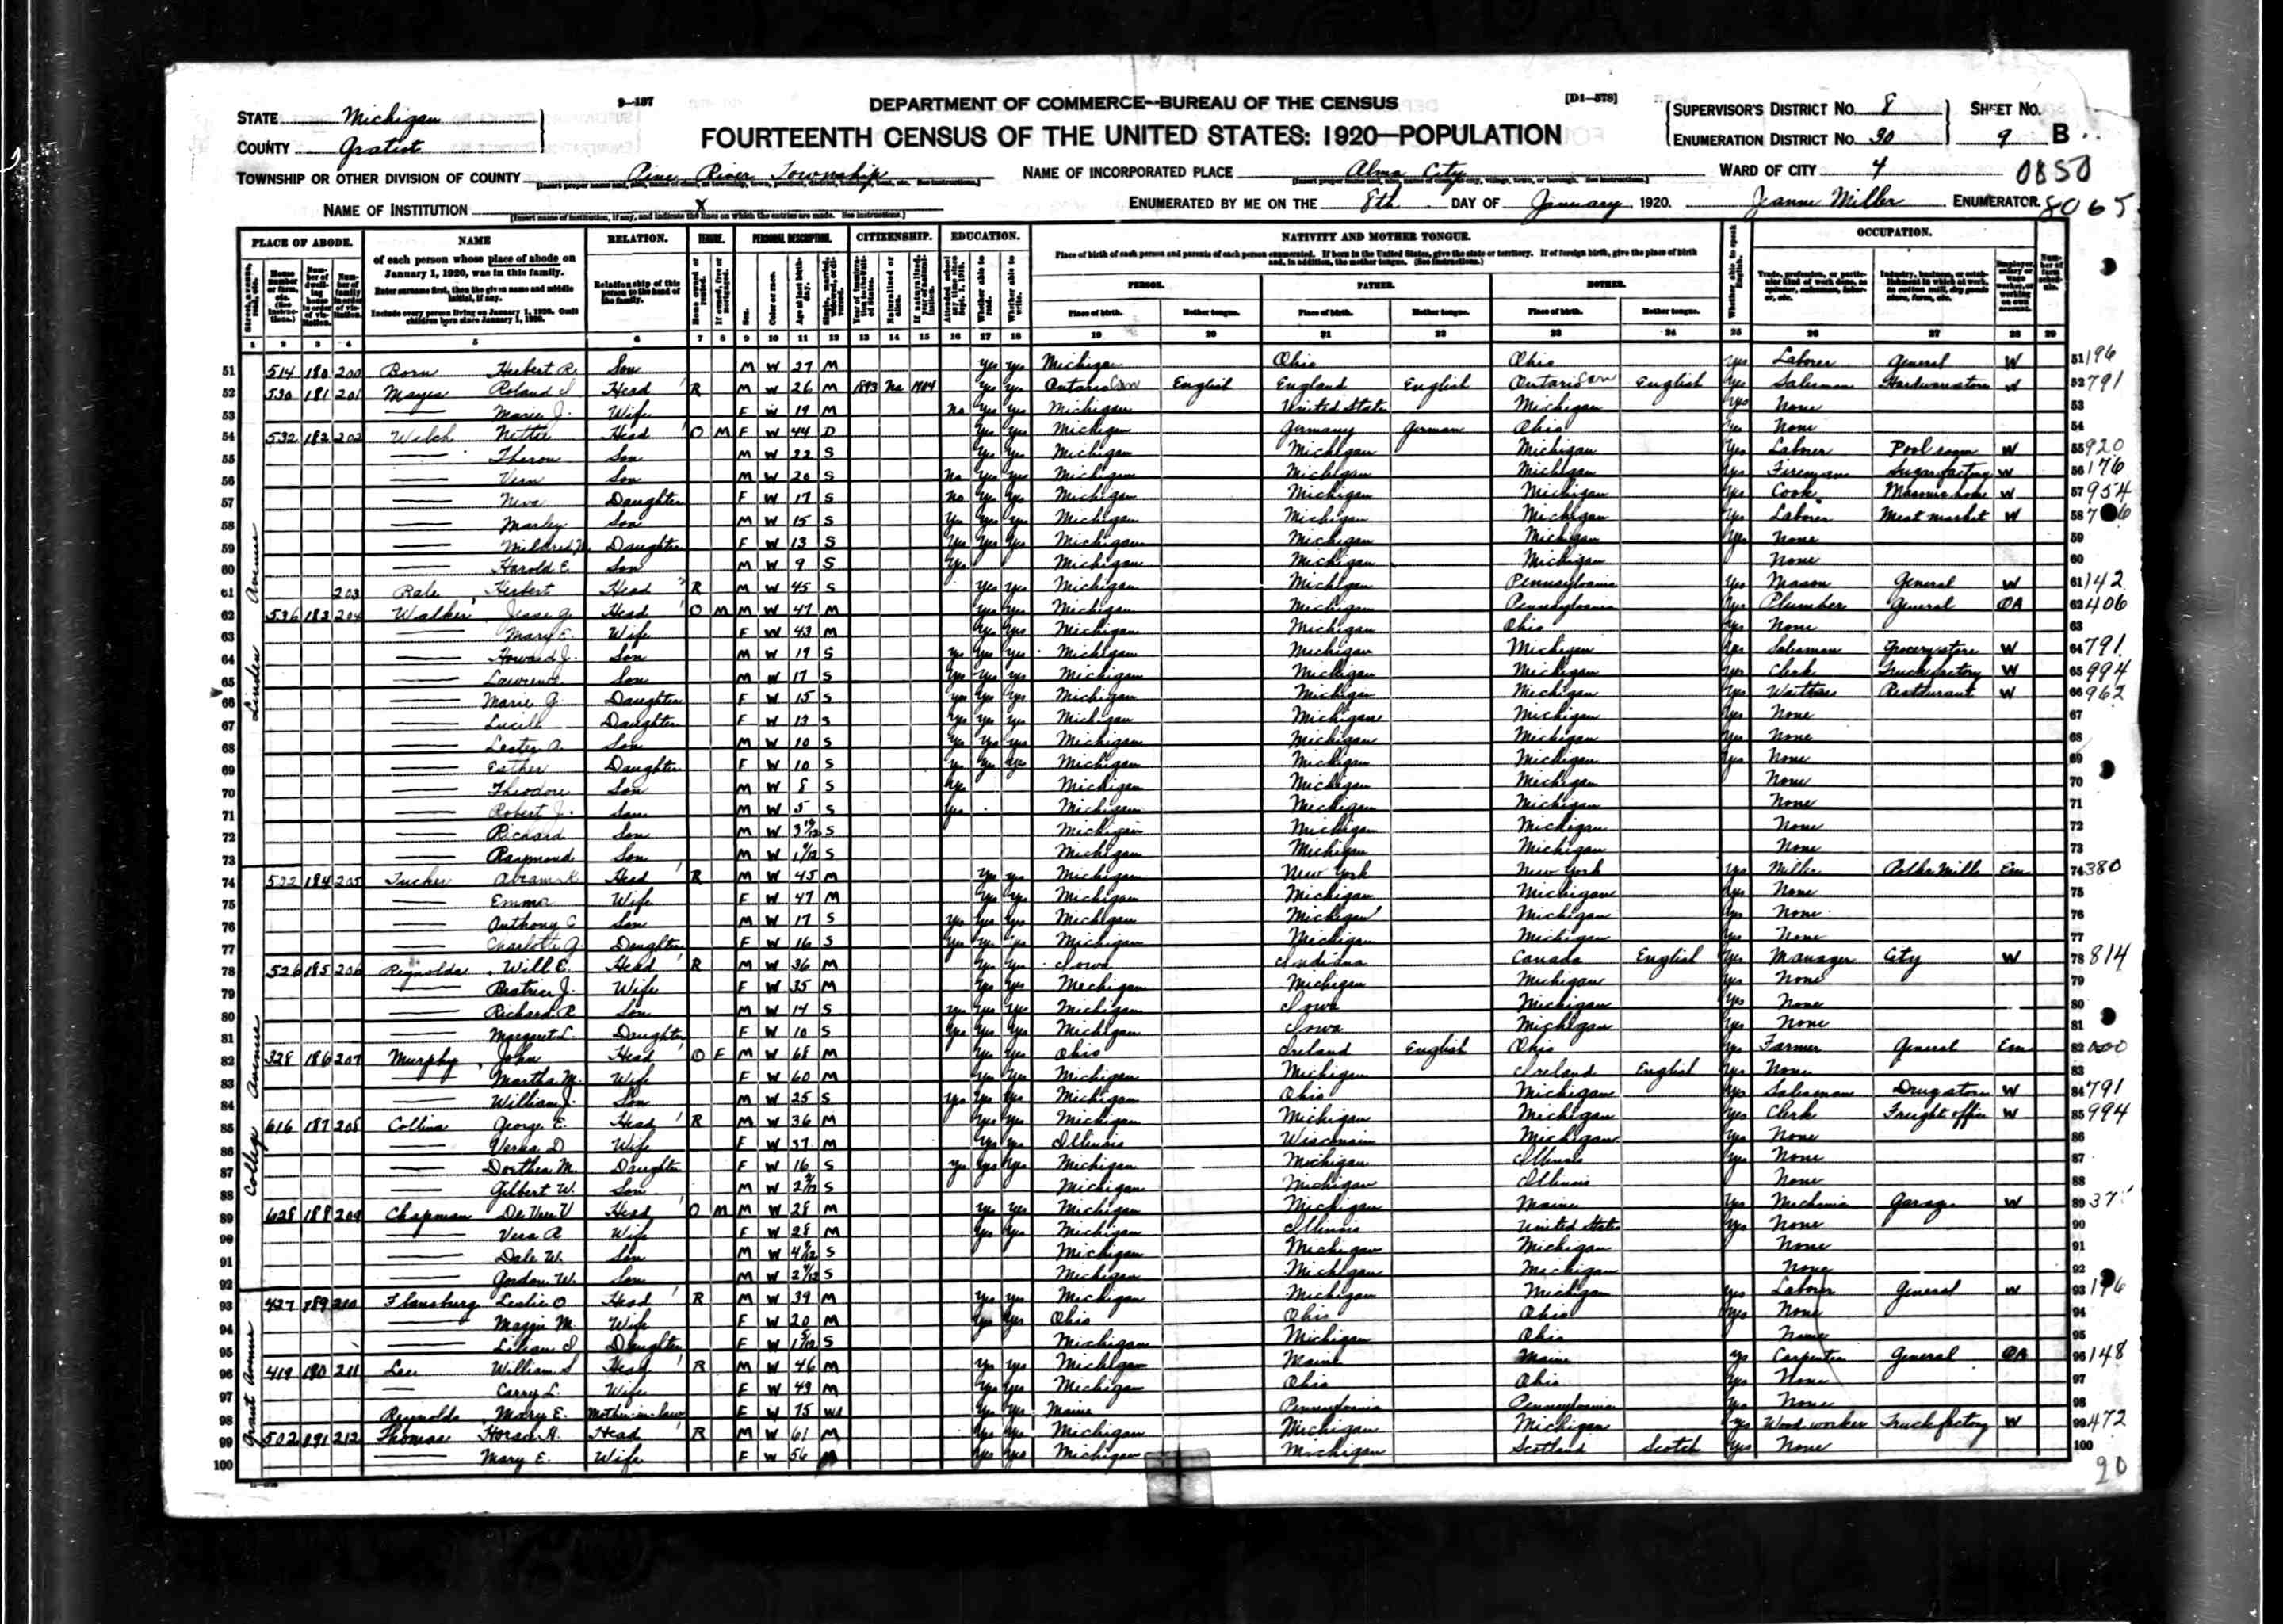 9-137
DEPARTMENT OF COMMERCE--BUREAU OF THE CENSUS
[D1-578]
FOURTEENTH CENSUS OF THE UNITED STATES: 1920—POPULATION
STATE Michigan
COUNTY Gratiot
TOWNSHIP OR OTHER DIVISION OF COUNTY Pine River Township
NAME OF INSTITUTION X
NAME OF INCORPORATED PLACE Alma City
ENUMERATED BY ME ON THE 8th DAY OF January, 1920. Jeanne Miller ENUMERATOR.
SUPERVISOR'S DISTRICT No. 8
ENUMERATION DISTRICT No. 30
SHEET No. 9 B
WARD OF CITY 4
0850
8065
PLACE OF ABODE. NAME RELATION. TENURE. PERSONAL DESCRIPTION. CITIZENSHIP. EDUCATION. NATIVITY AND MOTHER TONGUE. OCCUPATION.
of each person whose place of abode on January 1, 1920, was in this family.
Enter surname first, then the given name and middle initial, if any.
Include every person living on January 1, 1920. Omit children born since January 1, 1920.
Relationship of this person to the head of the family.
Place of birth of each person and parents of each person enumerated. If born in the United States, give the state or territory. If of foreign birth, give the place of birth and, in addition, the mother tongue. (See instructions.)
PERSON. FATHER. MOTHER.
Place of birth. Mother tongue. Place of birth. Mother tongue. Place of birth. Mother tongue.
1 2 3 4 5 6 7 8 9 10 11 12 13 14 15 16 17 18 19 20 21 22 23 24 25 26 27 28 29
Linden Avenue
51 514 180 200 Born Herbert R. Son M W 27 M Yes Yes Michigan Ohio Ohio Yes Laborer General W 51 196
52 530 181 201 Mayes Roland Head R M W 26 M 1893 Na 1904 Yes Yes Ontario Can English England English Ontario Can English Yes Salesman Hardware store W 52 791
53 Marie J. Wife F W 19 M No Yes Yes Michigan United States Michigan Yes None 53
54 532 182 202 Welch Nettie Head O M F W 44 D Yes Yes Michigan Germany German Ohio Yes None 54
55 Theron Son M W 22 S Yes Yes Michigan Michigan Michigan Yes Laborer Pool room W 55 920
56 Vern Son M W 20 S No Yes Yes Michigan Michigan Michigan Yes Fireman Sugar factory W 56 176
57 Neva Daughter F W 17 S No Yes Yes Michigan Michigan Michigan Yes Cook Masonic home W 57 954
58 Marley Son M W 15 S Yes Yes Yes Michigan Michigan Michigan Yes Laborer Meat market W 58
59 Mildred Daughter F W 13 S Yes Yes Yes Michigan Michigan Michigan Yes None 59
60 Harold E. Son M W 9 S Yes Michigan Michigan Michigan None 60
61 203 Herbert Head R M W 45 S Yes Yes Michigan Michigan Pennsylvania Yes Mason General W 61 142
62 536 183 204 Walker Jesse G. Head O M M W 47 M Yes Yes Michigan Michigan Pennsylvania Yes Plumber General OA 62 406
63 Mary E. Wife F W 43 M Yes Yes Michigan Michigan Ohio Yes None 63
64 Howard J. Son M W 19 S Yes Yes Yes Michigan Michigan Michigan Yes Salesman Grocery store W 64 791
65 Lawrence Son M W 17 S Yes Yes Yes Michigan Michigan Michigan Yes Clerk Truck factory W 65 994
66 Marie G. Daughter F W 15 S Yes Yes Yes Michigan Michigan Michigan Yes Waitress Restaurant W 66 962
67 Lucile Daughter F W 13 S Yes Yes Yes Michigan Michigan Michigan Yes None 67
68 Lester A. Son M W 10 S Yes Yes Yes Michigan Michigan Michigan Yes None 68
69 Esther Daughter F W 10 S Yes Yes Yes Michigan Michigan Michigan Yes None 69
70 Theodore Son M W 8 S Yes Michigan Michigan Michigan None 70
71 Robert J. Son M W 5 S Yes Michigan Michigan Michigan None 71
72 Richard Son M W S Michigan Michigan Michigan None 72
73 Raymond Son M W S Michigan Michigan Michigan None 73
College Avenue
74 184 205 Tucker Abram K. Head R M W 45 M Yes Yes Michigan New York New York Yes Miller Mills Em 74 380
75 Emma Wife F W 47 M Yes Yes Michigan Michigan Michigan Yes None 75
76 Anthony C Son M W 17 S Yes Yes Yes Michigan Michigan Michigan Yes None 76
77 Charlotte Daughter F W 16 S Yes Yes Yes Michigan Michigan Michigan Yes None 77
78 526 185 206 Reynolds, Will E. Head R M W 36 M Yes Yes Iowa Indiana Canada English Yes Manager City W 78 814
79 Beatrice J. Wife F W 35 M Yes Yes Michigan Michigan Michigan Yes None 79
80 Richard R. Son M W 14 S Yes Yes Yes Michigan Iowa Michigan Yes None 80
81 Margaret L. Daughter F W 10 S Yes Yes Yes Michigan Iowa Michigan Yes None 81
82 328 186 207 Murphy, John Head O F M W 68 M Yes Yes Ohio Ireland English Ohio Yes Farmer General Em 82
83 Martha M. Wife F W 60 M Yes Yes Michigan Michigan Ireland English Yes None 83
84 William J. Son M W 25 S Yes Yes Yes Michigan Ohio Michigan Yes Salesman Drug store W 84 791
85 616 187 208 Collins George E. Head R M W 36 M Yes Yes Michigan Michigan Michigan Yes Clerk Freight office W 85 994
86 Verna D. Wife F W 37 M Yes Yes Illinois Wisconsin Michigan Yes None 86
87 Dorthea M. Daughter F W 16 S Yes Yes Yes Michigan Michigan Illinois Yes None 87
88 Gilbert W. Son M W S Michigan Michigan Illinois None 88
89 628 188 209 Chapman De Vere V Head O M M W 28 M Yes Yes Michigan Michigan Maine Yes Mechanic Garage W 89
90 Vera A. Wife F W 28 M Yes Yes Michigan Illinois United States Yes None 90
91 Dale W. Son M W S Michigan Michigan Michigan None 91
92 Gordon W. Son M W S Michigan Michigan Michigan None 92
Grant Avenue
93 427 189 210 Flansburg Leslie O Head R M W 39 M Yes Yes Michigan Michigan Michigan Yes Laborer General W 93
94 Maggie M. Wife F W 20 M Yes Yes Ohio Ohio Ohio Yes None 94
95 Lilian Daughter F W S Michigan Michigan Ohio None 95
96 419 190 211 Lee William S Head R M W 46 M Yes Yes Michigan Maine Maine Yes Carpenter General OA 96 148
97 Carry L. Wife F W 49 M Yes Yes Michigan Ohio Ohio Yes None 97
98 Reynolds, Mary E. Mother-in-law F W 75 Wd Yes Yes Maine Pennsylvania Pennsylvania Yes None 98
99 502 191 212 Thomas Horace H. Head R M W 61 M Yes Yes Michigan Michigan Michigan Yes Wood worker Truck factory W 99 472
100 Mary E. Wife F W 56 M Yes Yes Michigan Michigan Scotland Scotch Yes None 100
20